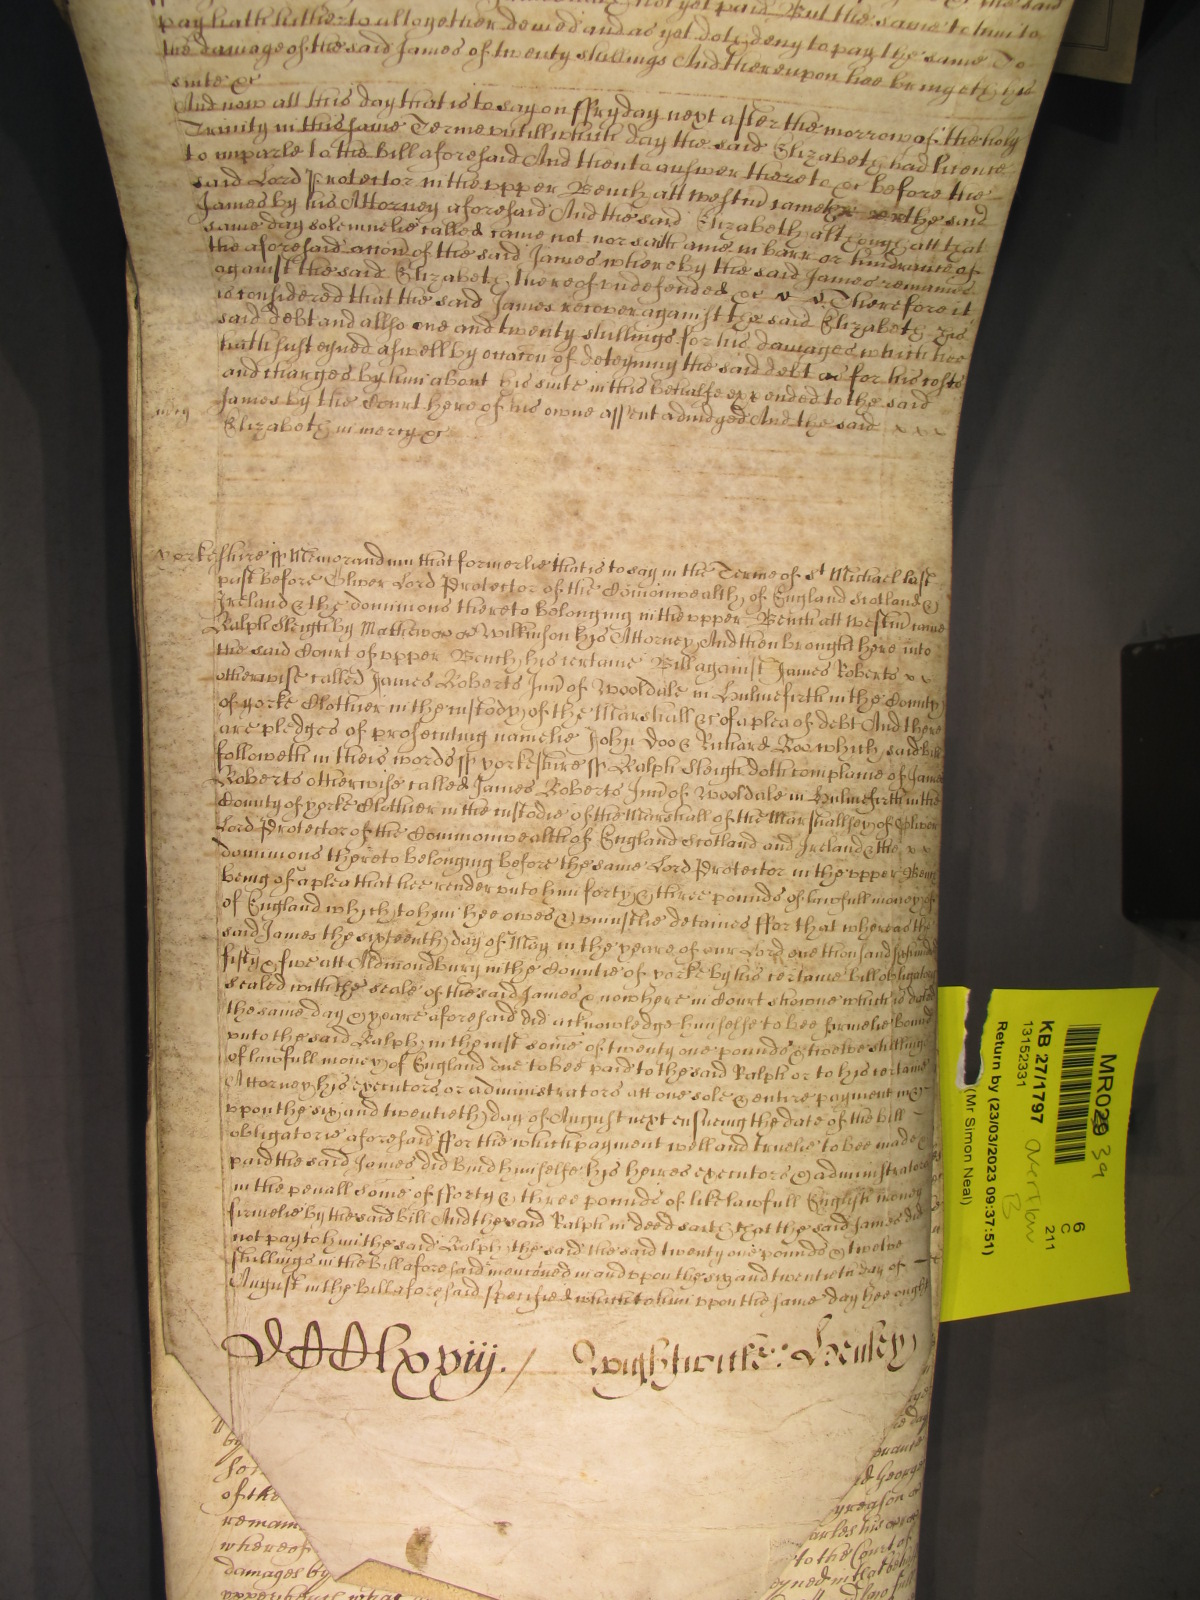 not yet paid But the same to him to
pay hath hitherto altogether denied and as yet doth deny to pay the same To
the damage of the said James of twenty shillings And thereupon hee bringeth his
suite &c
And now att this day that is to say on ffryday next after the morrow of the holy
Trinity in this same Terme untill which day the said Elizabeth had licence
to imparle to the bill aforesaid And then to answer thereto &c before the
said Lord Protector in the upper Bench att Westm came the said
James by his Attorney aforesaid And the said Elizabeth although att that
same day solemnelie called came not nor saith in barr or hindrance of
the aforesaid accon of the said James whereby the said James remaines
against the said Elizabeth thereof undefended &c Therefore it
is considered that the said James recover against the said Elizabeth his
said debt and allso one and twenty shillings for his damages which hee
hath susteyned aswell by occacon of deteyning the said debt as for his costs
and charges by him about his suite in this behalfe expended to the said
James by the Court here of his owne assent adiudged And the said
mercy
Elizabeth in mercy &c
Yorkeshire ss Memorandum that formerlie that is to say in the Terme of St Michael last
past before Oliver Lord Protector of the Comonwealth of England Scotland &
Ireland & the dominions thereto belonging in the upper Bench att Westm came
Ralph Sleigh by Mathewe Wilkinson his Attorney And then brought here into
the said Court of upper Bench his certaine Bill against James Roberts
otherwise called James Roberts Iun of Wooldale in Hulmefirth in the County
of yorke Clothier in the custody of the Marshall &c of a plea of debt And there
are pledges of prosecuting namelie John Doo & Richard Roo which said bill
followeth in theis words ss yorkeshire ss Ralph Sleigh doth complaine of James
Roberts otherwise called James Roberts Iun of Wooldale in Hulmefirth in the
County of yorke Clothier in the custodie of the Marshall of the Marshallsey of Oliver
Lord Protector of the Commonwealth of England Scotland and Ireland & the
dominions thereto belonging before the same Lord Protector in the upper Bench
being of a plea that hee render unto him forty & three pounds of lawfull money of
of England which to him hee owes & uniustlie detaines ffor that whereas the
said James the sixteenth day of May in the yeare of our Lord one thousand six hundred
fifty & five att Aldmondbury in the Countie of yorke by his certaine bill obligatory
sealed with the seale of the said James & now here in Court showne which is dated
the same day & yeare aforesaid did acknowledge himselfe to bee firmelie bound
unto the said Ralph in the iust some of twenty one pounds & twelve shillings
of lawfull money of England due to bee paid to the said Ralph or to his certaine
Attorney his executors or administrators att one sole & entire payment in &
upon the six and twentieth day of August next ensueing the date of the bill
obligatorie aforesaid ffor the which payment well and truelie to bee made &
paid the said James did bind himselfe his heires executors & administrators
in the penall some of fforty & three pounds of like lawfull English money
firmelie by the said bill And the said Ralph in deed saith that the said James did
not pay to him the said Ralph the said the said twenty one pounds & twelve
shillings in the bill aforesaid mencioned in and upon the six and twentieth day of
August in the bill aforesaid specified which to him upon the same day hee ought
Wightwicke: Henley
by
of the
remain
whereof
damages by
George
reason
to the Court of
MR0
39
KB 27/1797
13152331
Overflow
B
6
C
211
Return by (23/03/2023 09:37:51)
(Mr Simon Neal)